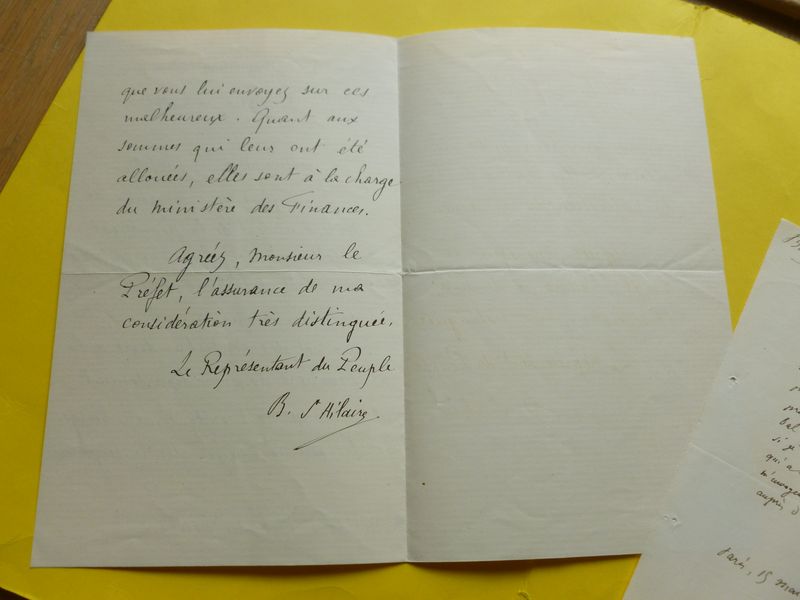 que vous lui envoyez sur ces
malheureux. Quant aux
sommes qui leur ont été
allouées, elles sont à la charge
du Ministère des Finances.
Agréez, Monsieur le
Préfet, l'assurance de ma
considération très distinguée.
Le Représentant du Peuple
B. St Hilaire
si je
qui a
auprès d
Paris, 15 mai